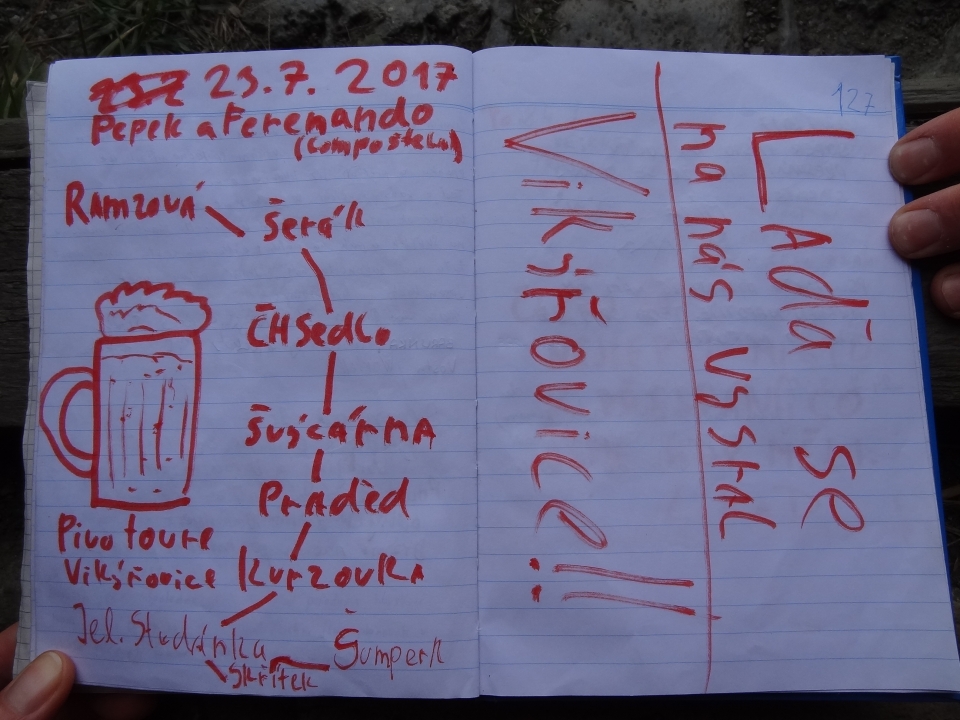 23.7. 2017
Pepek a Ferenando
(Compostela)
Ramzová
Šerák
ČHSedlo
Švýcárna
Praděd
Kurzovka
Jel. Studánka
Skřítek
Šumperk
Pivo toure
Vikýřovice
127
Lada se
na nás vysral
Vikýřovice!!